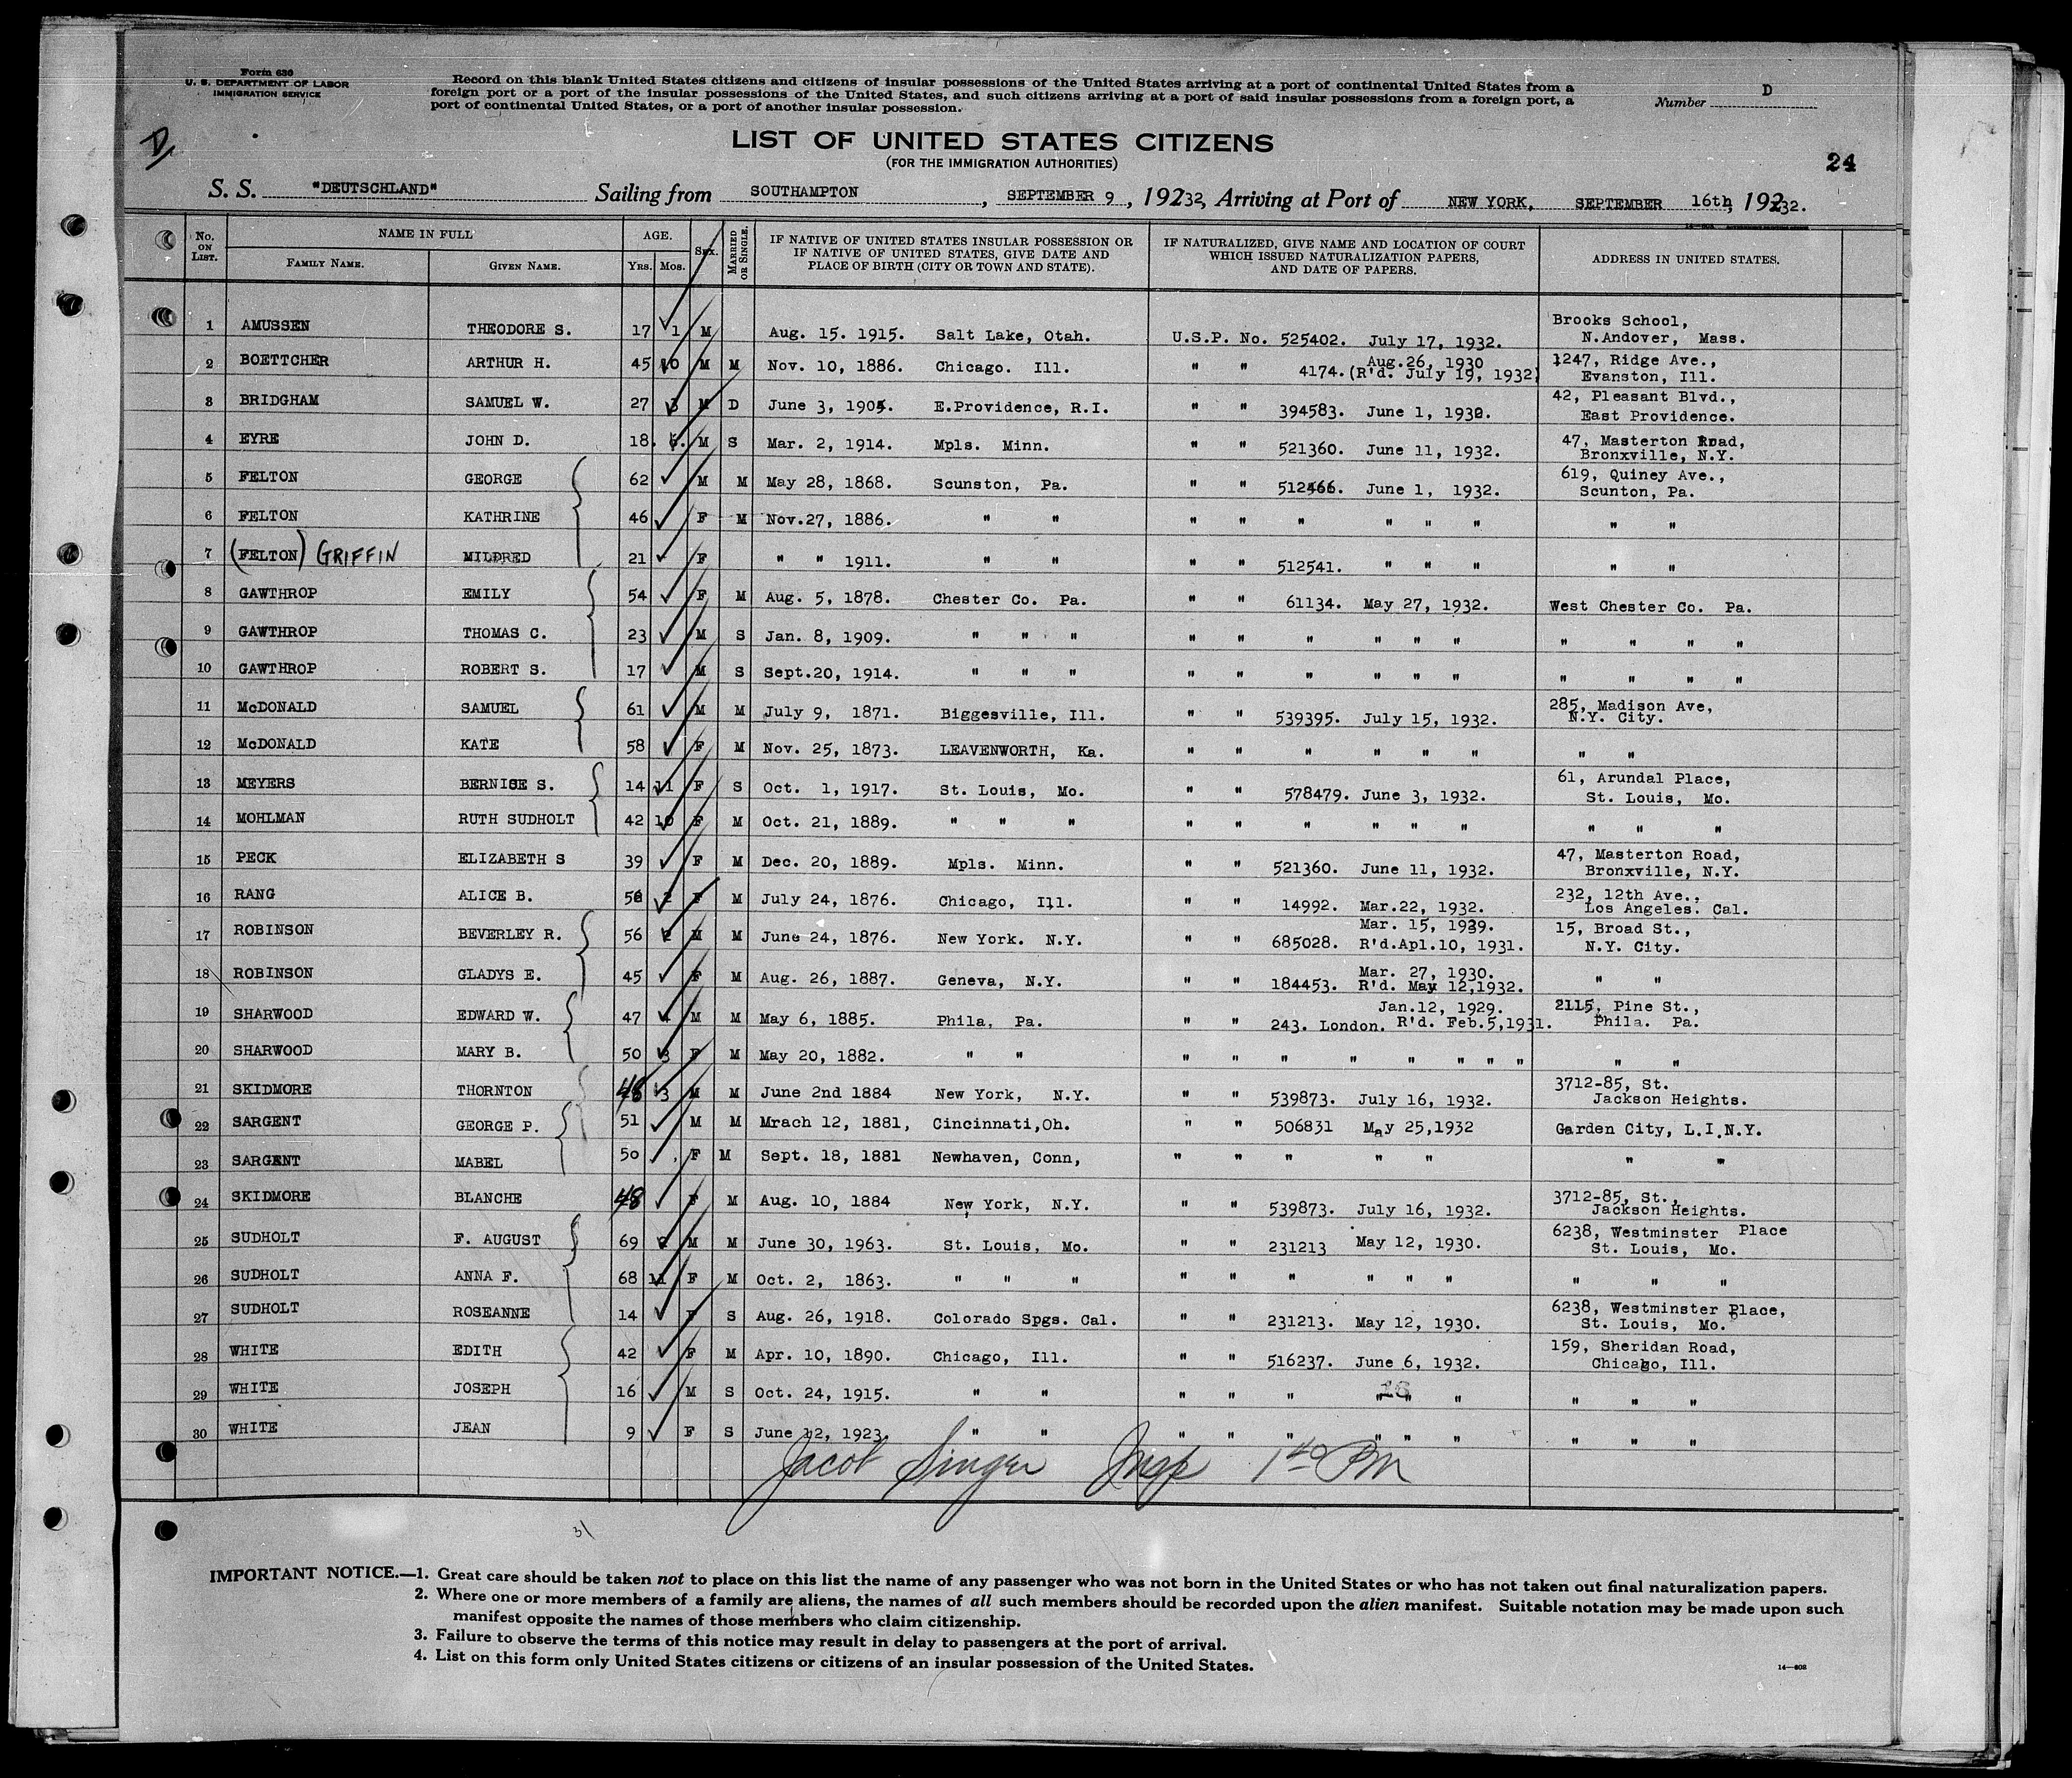 Form 630
U. S. DEPARTMENT OF LABOR
IMMIGRATION SERVICE
Record on this blank United States citizens and citizens of insular possessions of the United States arriving at a port of continental United States from a
foreign port or a port of the insular possessions of the United States, and such citizens arriving at a port of said insular possessions from a foreign port, a
port of continental United States, or a port of another insular possession.
Number D
D
LIST OF UNITED STATES CITIZENS
(FOR THE IMMIGRATION AUTHORITIES)
24
S. S. "DEUTSCHLAND" Sailing from SOUTHAMPTON, SEPTEMBER 9, 19232, Arriving at Port of NEW YORK, SEPTEMBER 16th, 19232.
No. ON LIST. NAME IN FULL FAMILY NAME. GIVEN NAME. AGE. YRS. MOS. SEX. MARRIED OR SINGLE. IF NATIVE OF UNITED STATES INSULAR POSSESSION OR IF NATIVE OF UNITED STATES, GIVE DATE AND PLACE OF BIRTH (CITY OR TOWN AND STATE). IF NATURALIZED, GIVE NAME AND LOCATION OF COURT WHICH ISSUED NATURALIZATION PAPERS, AND DATE OF PAPERS. ADDRESS IN UNITED STATES.
1 AMUSSEN THEODORE S. 17 1 M Aug. 15. 1915. Salt Lake, Otah. U.S.P. No. 525402. July 17, 1932. Brooks School, N.Andover, Mass.
2 BOETTCHER ARTHUR H. 45 10 M M Nov. 10, 1886. Chicago. Ill. " " 4174. Aug.26, 1930 (R'd. July 19, 1932) 1247, Ridge Ave., Evanston, Ill.
3 BRIDGHAM SAMUEL W. 27 3 M D June 3, 1905. E.Providence, R.I. " " 394583. June 1, 1932. 42, Pleasant Blvd., East Providence.
4 EYRE JOHN D. 18. 6. M S Mar. 2, 1914. Mpls. Minn. " " 521360. June 11, 1932. 47, Masterton Road, Bronxville, N.Y.
5 FELTON GEORGE 62 M M May 28, 1868. Scunston, Pa. " " 512466. June 1, 1932. 619, Quiney Ave., Scunton, Pa.
6 FELTON KATHRINE 46 F M Nov.27, 1886. " " " " " " " " " "
7 (FELTON) GRIFFIN MILDRED 21 F " " 1911. " " " " 512541. " " " " "
8 GAWTHROP EMILY 54 F M Aug. 5, 1878. Chester Co. Pa. " " 61134. May 27, 1932. West Chester Co. Pa.
9 GAWTHROP THOMAS C. 23 M S Jan. 8, 1909. " " " " " " " " " " " " "
10 GAWTHROP ROBERT S. 17 M S Sept.20, 1914. " " " " " " " " " " " " "
11 McDONALD SAMUEL 61 M M July 9, 1871. Biggesville, Ill. " " 539395. July 15, 1932. 285, Madison Ave, N.Y. City.
12 McDONALD KATE 58 F M Nov. 25, 1873. LEAVENWORTH, Ka. " " " " " " " "
13 MEYERS BERNISE S. 14 11 F S Oct. 1, 1917. St. Louis, Mo. " " 578479. June 3, 1932. 61, Arundal Place, St. Louis, Mo.
14 MOHLMAN RUTH SUDHOLT 42 10 F M Oct. 21, 1889. " " " " " " " " " " " "
15 PECK ELIZABETH S 39 F M Dec. 20, 1889. Mpls. Minn. " " 521360. June 11, 1932. 47, Masterton Road, Bronxville, N.Y.
16 RANG ALICE B. 56 2 F M July 24, 1876. Chicago, Ill. " " 14992. Mar.22, 1932. 232, 12th Ave., Los Angeles. Cal.
17 ROBINSON BEVERLEY R. 56 2 M M June 24, 1876. New York. N.Y. " " 685028. Mar. 15, 1929. R'd.Apl.10, 1931. 15, Broad St., N.Y. City.
18 ROBINSON GLADYS E. 45 F M Aug. 26, 1887. Geneva, N.Y. " " 184453. Mar. 27, 1930. R'd. May 12,1932. " "
19 SHARWOOD EDWARD W. 47 4 M M May 6, 1885. Phila, Pa. " " 243. London. Jan.12, 1929. R'd. Feb.5,1931. 2115, Pine St., Phila. Pa.
20 SHARWOOD MARY B. 50 3 F M May 20, 1882. " " " " " " " " " " " "
21 SKIDMORE THORNTON 48 3 M M June 2nd 1884 New York, N.Y. " " 539873. July 16, 1932. 3712-85, St. Jackson Heights.
22 SARGENT GEORGE P. 51 M M Mrach 12, 1881, Cincinnati,Oh. " " 506831 May 25,1932 Garden City, L.I.N.Y.
23 SARGENT MABEL 50 F M Sept. 18, 1881 Newhaven, Conn, " " " " " " "
24 SKIDMORE BLANCHE 48 F M Aug. 10, 1884 New York, N.Y. " " 539873. July 16, 1932. 3712-85, St., Jackson Heights.
25 SUDHOLT F. AUGUST 69 2 M M June 30, 1963. St. Louis, Mo. " " 231213 May 12, 1930. 6238, Westminster Place St. Louis, Mo.
26 SUDHOLT ANNA F. 68 11 F M Oct. 2, 1863. " " " " " " " " " " " "
27 SUDHOLT ROSEANNE 14 F S Aug. 26, 1918. Colorado Spgs. Cal. " " 231213. May 12, 1930. 6238, Westminster Place, St. Louis, Mo.
28 WHITE EDITH 42 F M Apr. 10, 1890. Chicago, Ill. " " 516237. June 6, 1932. 159, Sheridan Road, Chicago, Ill.
29 WHITE JOSEPH 16 M S Oct. 24, 1915. " " " " " 16 " " " " " "
30 WHITE JEAN 9 F S June 12, 1923. " " " " " " " " " " "
Jacob Singer Insp 1 40 PM
31
IMPORTANT NOTICE.—1. Great care should be taken not to place on this list the name of any passenger who was not born in the United States or who has not taken out final naturalization papers.
2. Where one or more members of a family are aliens, the names of all such members should be recorded upon the alien manifest. Suitable notation may be made upon such
manifest opposite the names of those members who claim citizenship.
3. Failure to observe the terms of this notice may result in delay to passengers at the port of arrival.
4. List on this form only United States citizens or citizens of an insular possession of the United States.